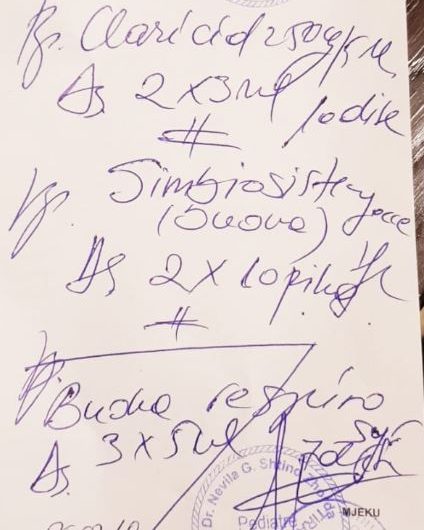 Rp. Claricid 250mg/5ml
DS 2 x 3ml 10 ditë
#
Rp. Simbiosistem gocce
(Buona)
DS 2 x 10 pika
#
Rp.
Buona respiro
DS 3 x 5ml
Dr. Nevila G. Shtino
Pediatre
MJEKU